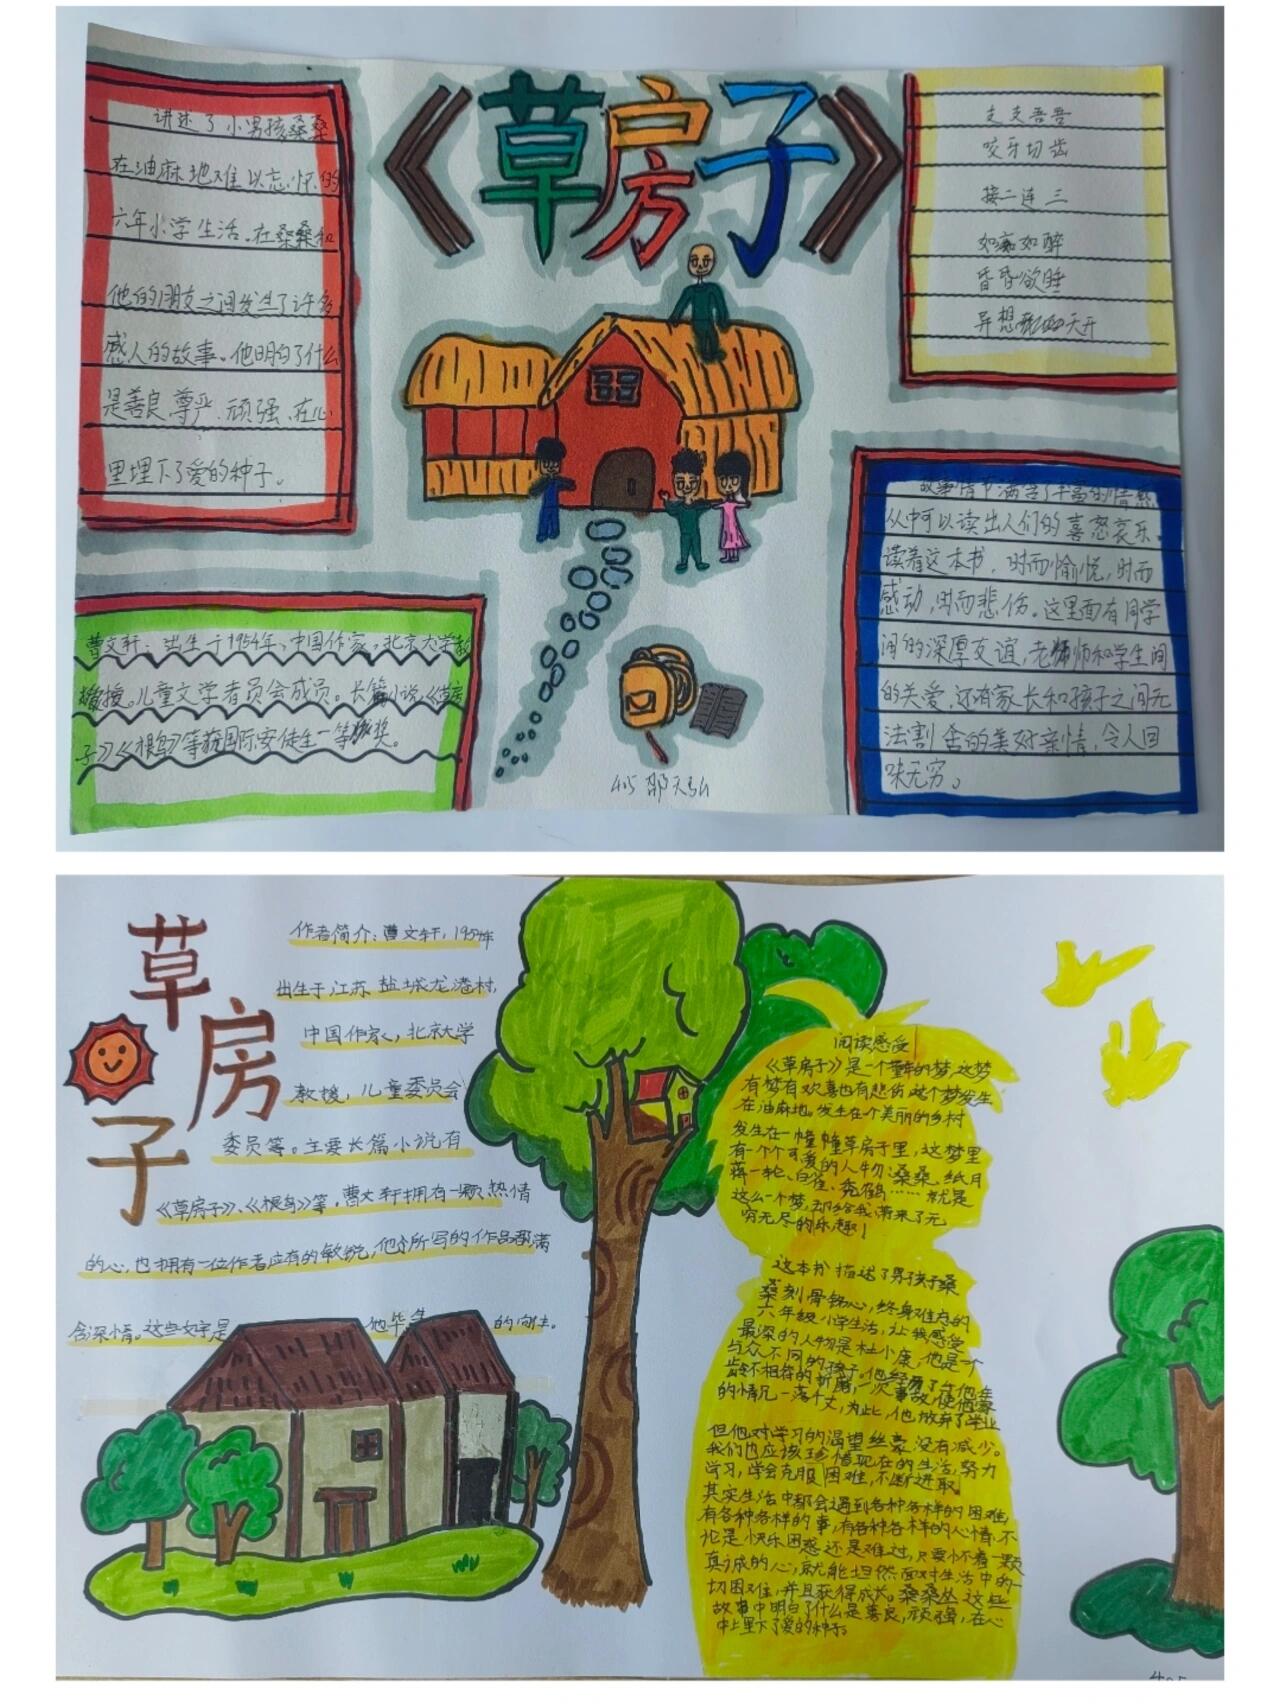 《草房子》
讲述了小男孩桑桑
在油麻地难以忘怀的
六年小学生活。在桑桑和
他的朋友之间发生了许多
感人的故事。他明白了什么
是善良、尊严、顽强、在心
里埋下了爱的种子。
支支吾吾
咬牙切齿
接二连三
如痴如醉
昏昏欲睡
异想天开
曹文轩：出生于1954年，中国作家，北京大学教
授。儿童文学者员会成员。长篇小说《草房
子》《根鸟》等获国际安徒生一等奖。
故事情节满含了丰富的情感
从中可以读出人们的喜怒哀乐。
读着这本书，时而愉悦，时而
感动，时而悲伤。这里面有同学
间的深厚友谊，老师和学生间
的关爱，还有家长和孩子之间无
法割舍的美好亲情，令人回
味无穷。
405 邵天弘
草房子
作者简介：曹文轩，1954年
出生于江苏盐城龙港村，
中国作家，北京大学
教授，儿童委员会
委员等。主要长篇小说有
《草房子》、《根鸟》等，曹文轩拥有一颗热情
的心，也拥有一位作者应有的敏锐，他所写的作品都满
含深情。这些文字是 他毕生 的向往。
阅读感受
《草房子》是一个童年的梦，这梦
有梦有欢喜也有悲伤，这个梦发生
在油麻地。发生在个美丽的乡村
发生在一幢幢草房子里，这梦里
有一个个可爱的人物：桑桑、纸月
蒋一轮、白雀、秃鹤……就是
这么一个梦，却给我带来了无
穷无尽的乐趣！
这本书描述了男孩子桑
桑刻骨铭心，终身难忘的
六年级小学生活，让我感受
最深的人物是杜小康，他是一个
与众不同的孩子。他经历了与他年
龄不相符的折磨，一次事故，使他家
的情况一落千丈，为此，他放弃了学业
但他对学习的渴望丝豪没有减少。
我们也应该珍惜现在的生活，努力
学习，学会克服困难，不断进取
其实生活中都会遇到各种各样的困难，
有各种各样的事，有各种各样的心情，不
论是快乐困惑还是难过，只要怀着一颗
真诚的心，就能坦然面对生活中的一
切困难，并且获得成长。桑桑丛这些
故事中明白了什么是善良，顽强，在心
中上里下了爱的种子。
405